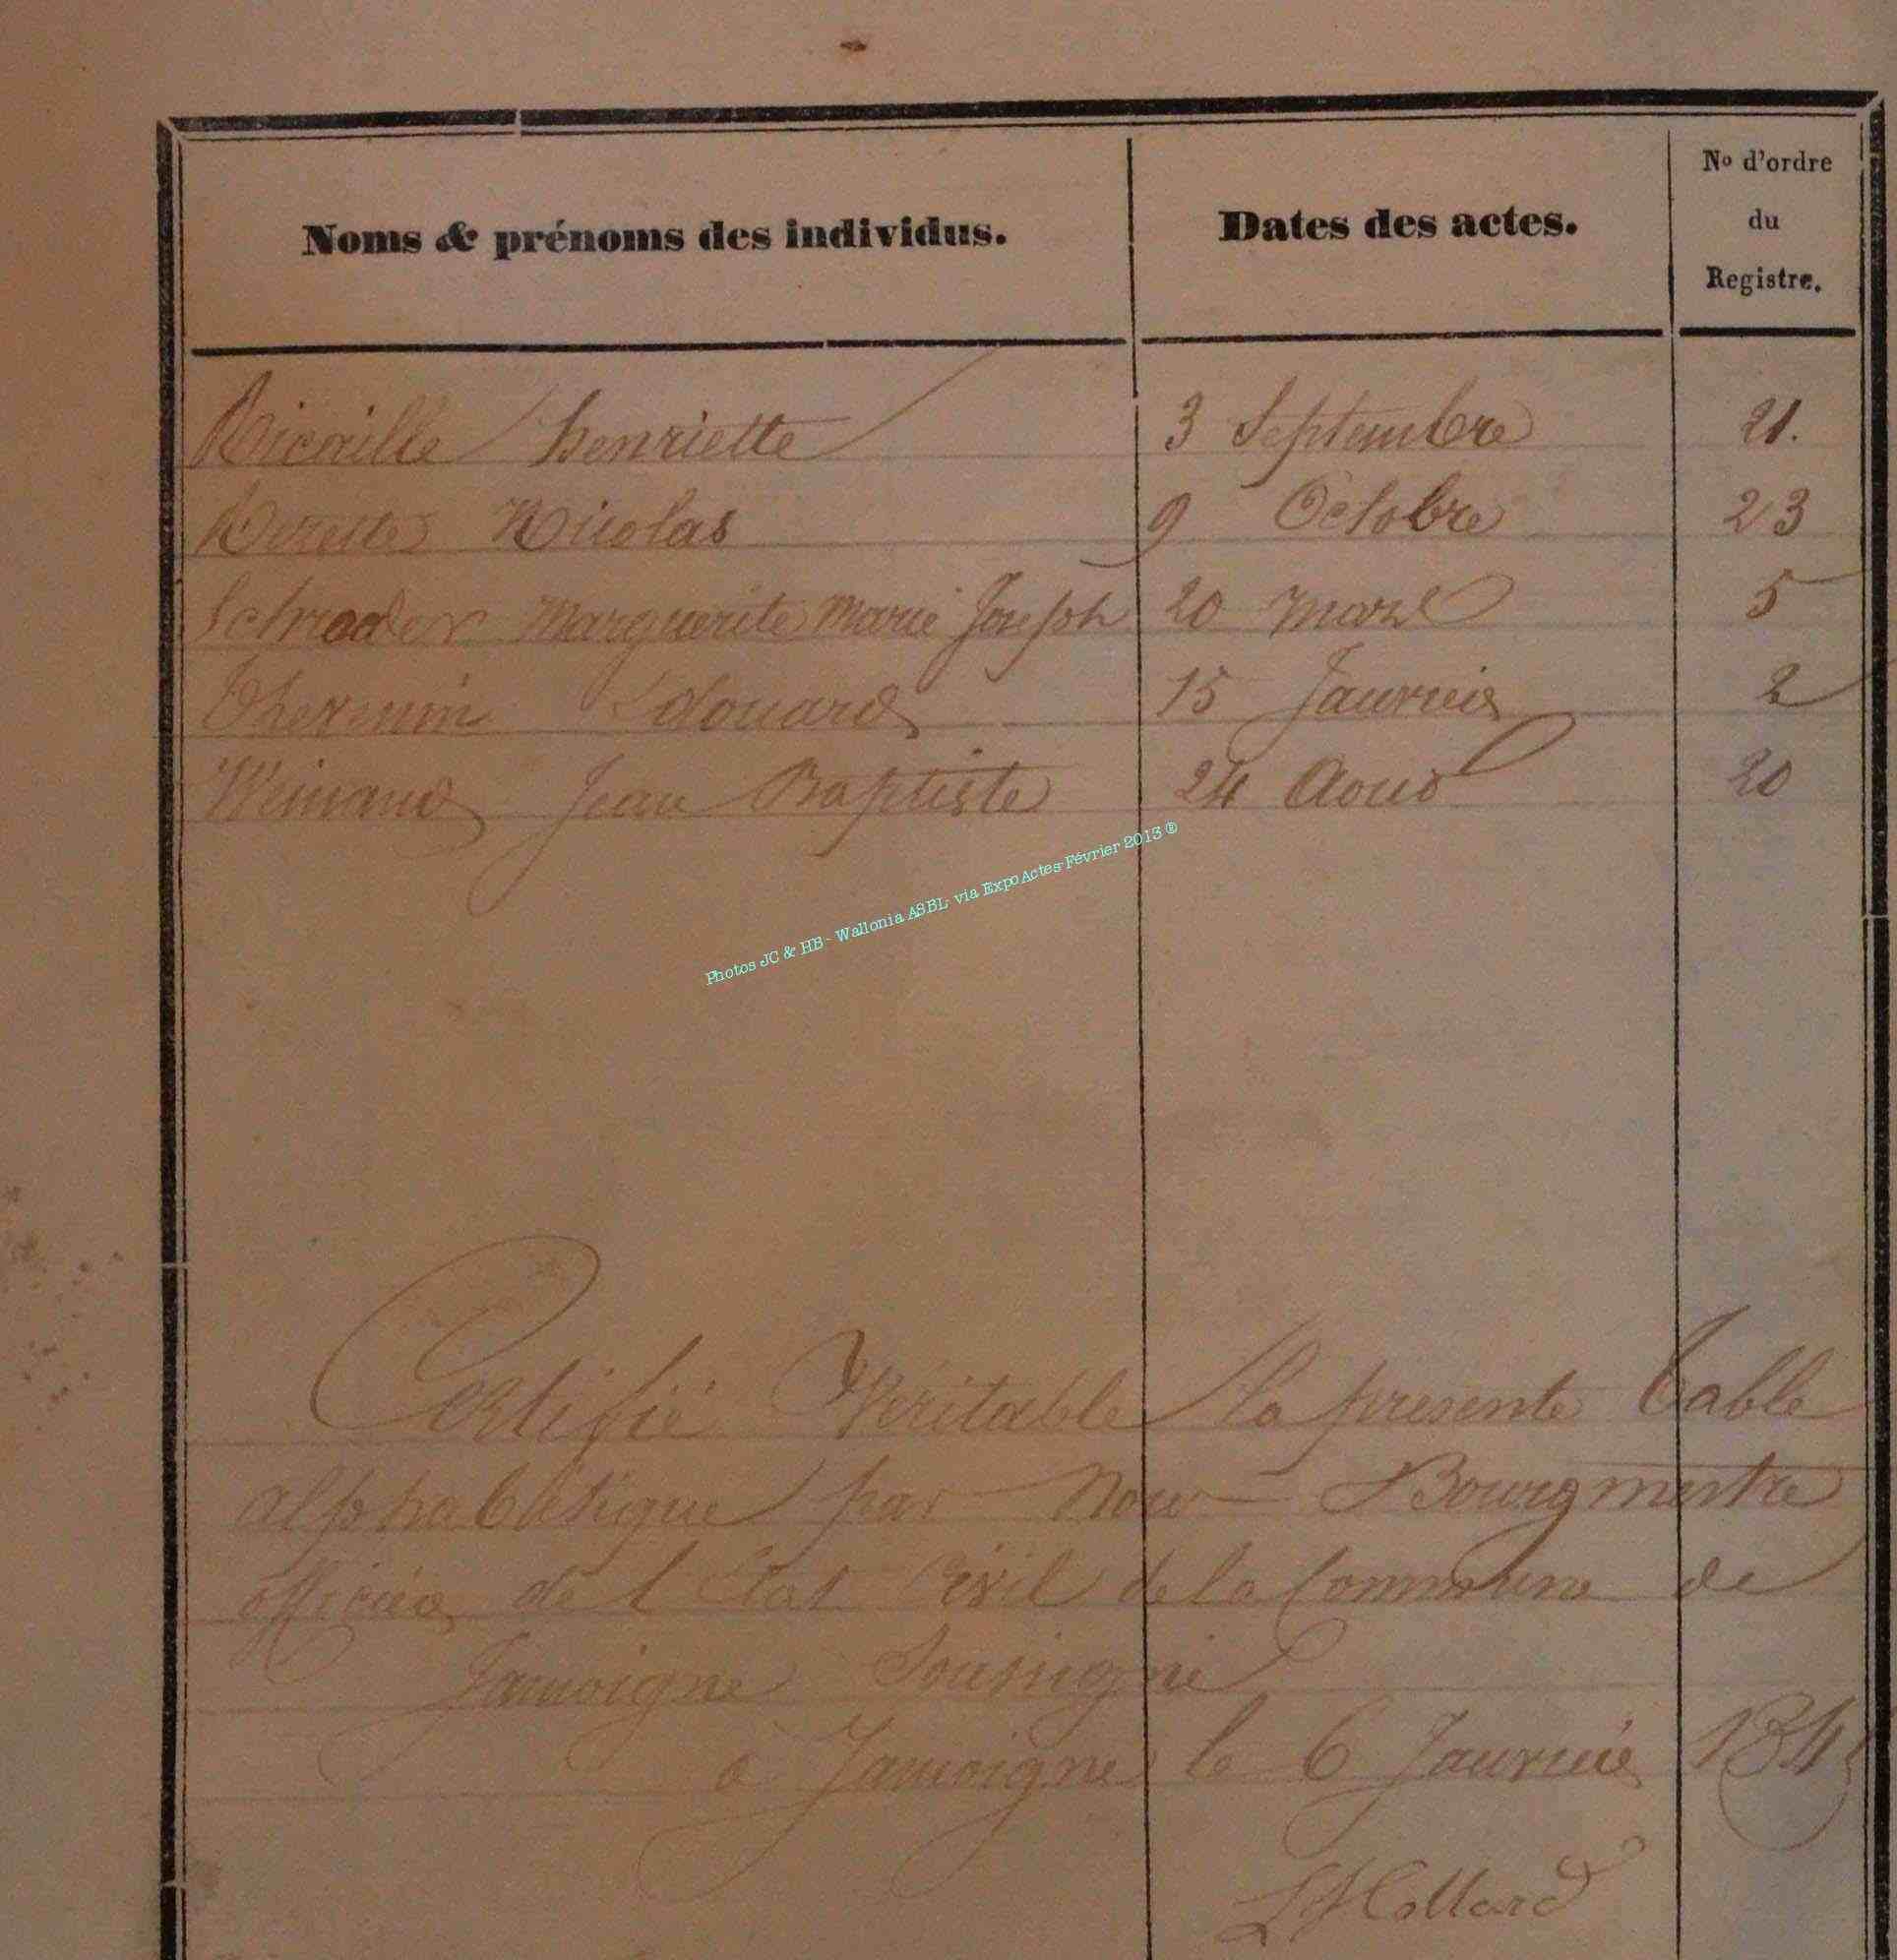 Noms & prénoms des individus.
Dates des actes.
No d'ordre
du
Registre.
Ricaille henriette 3 Septembre 21.
Nicolas 9 Octobre 23
Schroeder Marguerite Marie Joseph 20 mars 5
Thermin Edouard 15 Janvier 2
Weinand Jean Baptiste 24 Aout 20
Photos JC & HB - Wallonia ASBL via ExpoActes-Février 2013 ®
Certifié Véritable la presente table
alphabétique par nous Bourgmestre
officier de l Etat Civil de la Commune de
Jamoigne Soussigné
à Jamoigne le 6 Janvier
Collard